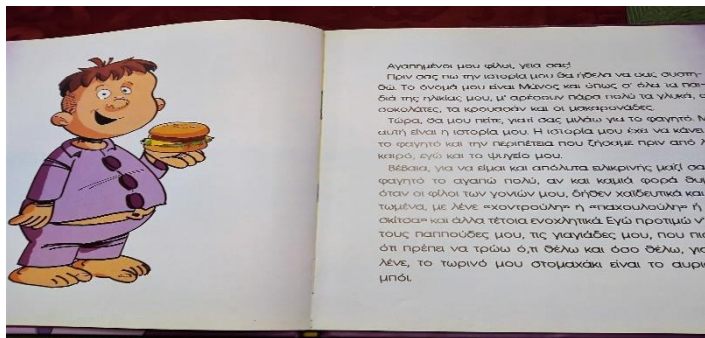 Αγαπημένοι μου φίλοι, γεια σας!
Πριν σας πω την ιστορία μου θα ήθελα να σας συστη-
θώ. Το όνομά μου είναι Μάνος και όπως σ' όλα τα παι-
διά της ηλικίας μου, μ' αρέσουν πάρα πολύ τα γλυκά, ο
σοκολάτες, τα κρουασάν και οι μακαρονάδες.
Τώρα, θα μου πείτε, γιατί σας μιλάω για το φαγητό. Μ
αυτή είναι η ιστορία μου. Η ιστορία μου έχει να κάνει
το φαγητό και την περιπέτεια που ζήσαμε πριν από λ
καιρό, εγώ και το ψυγείο μου.
Βέβαια, για να είμαι και απόλυτα ειλικρινής μαζί σα
φαγητό το αγαπώ πολύ, αν και καμιά φορά θυμ
όταν οι φίλοι των γονιών μου, δήθεν χαϊδευτικά και
τωμένα, με λένε «χοντρούλη» ή «παχουλούλη» ή
σκίτσα» και άλλα τέτοια ενοχλητικά. Εγώ προτιμώ ν'
τους παππούδες μου, τις γιαγιάδες μου, που πισ
ότι πρέπει να τρώω ό,τι θέλω και όσο θέλω, για
λένε, το τωρινό μου στομαχάκι είναι το αυρι
μπόι.